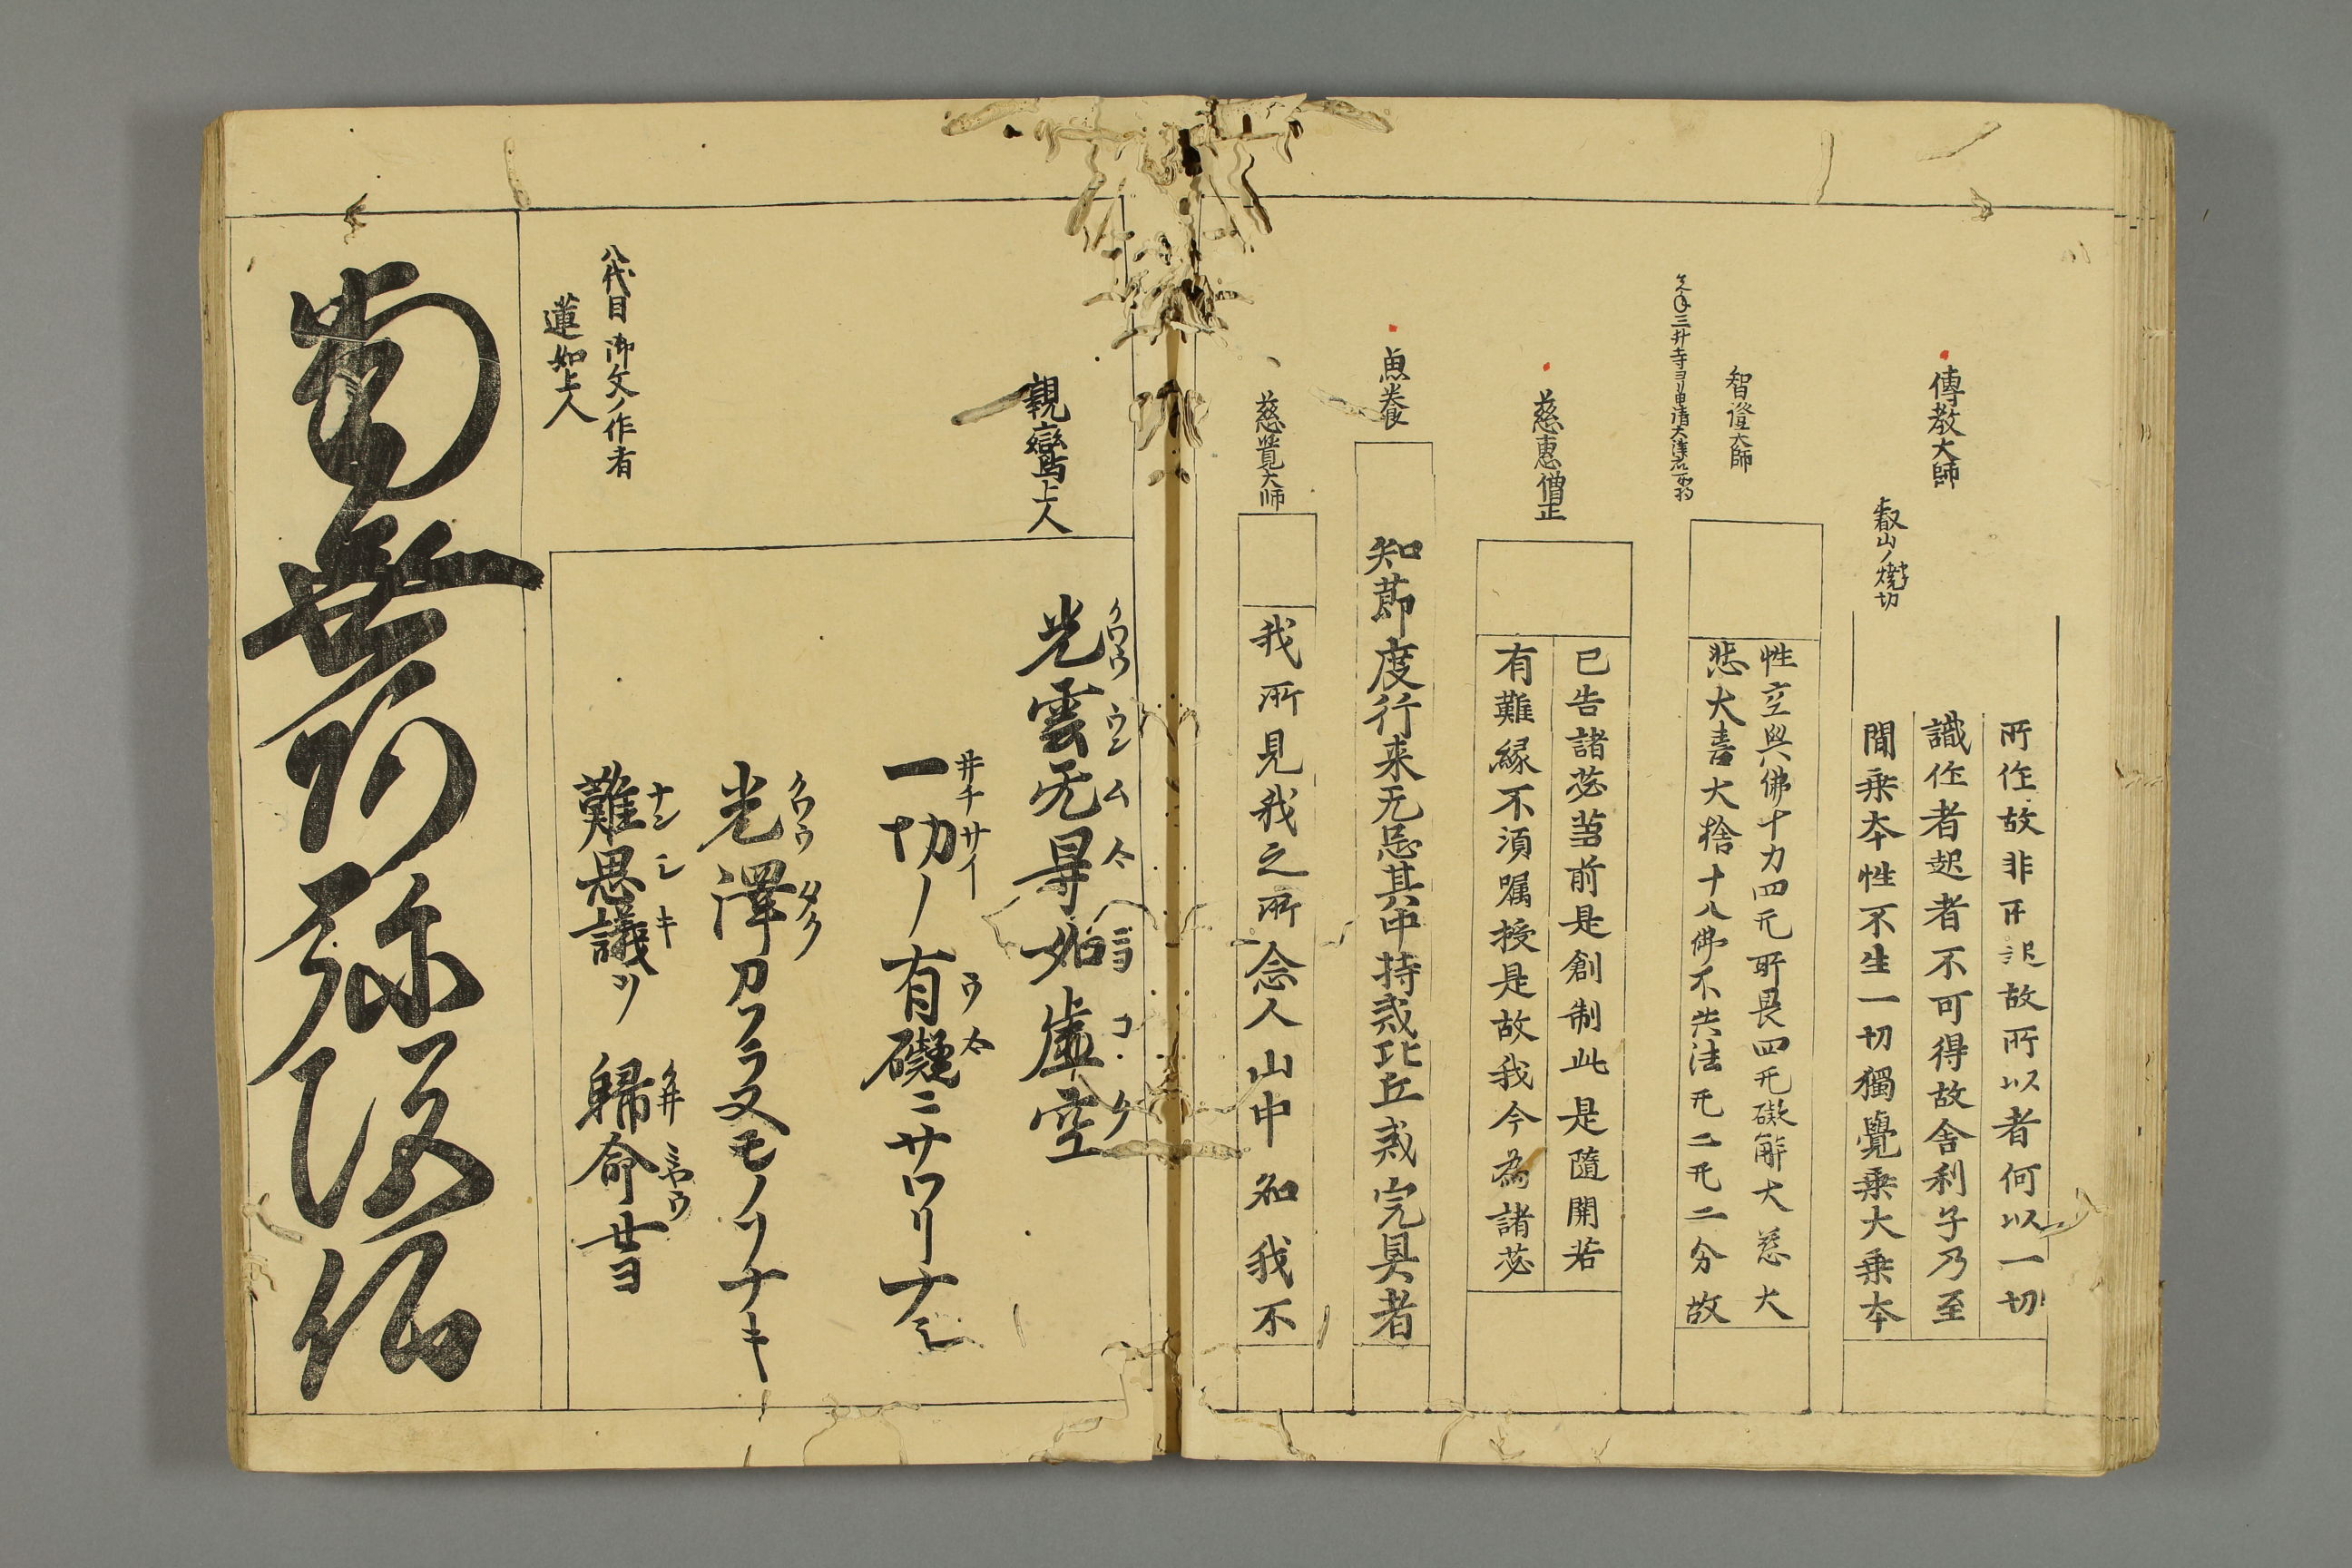 傳教大師
叡山ノ燒切
所作故非不退故所以者何以一切
識作者起者不可得故舍利子乃至
間乗本性不生一切獨覺乗大乗本
智證大師
性空與佛十力四无所畏四无礙解大慈大
悲大喜大捨十八佛不共法无二无二分故
慈惠僧正
已告諸苾蒭前是創制此是隨開若
有難縁不須嘱授是故我今為諸苾
魚養
知莭度行来无忌其中持戒比丘戒完具者
慈覺大师
我所見我之所念人山中名我不
親鸞上人
光雲无㝵如虚空
クワウウンムケニヨコクウ
一切ノ有礙ニサワリナシ
井チサイウケ
光澤カフラヌモノソナキ
クワウタク
難思議ヲ歸命せヨ
ナンシキクヰミヤウ
八代目御文ノ作者
蓮如上人
南無阿弥陀仏